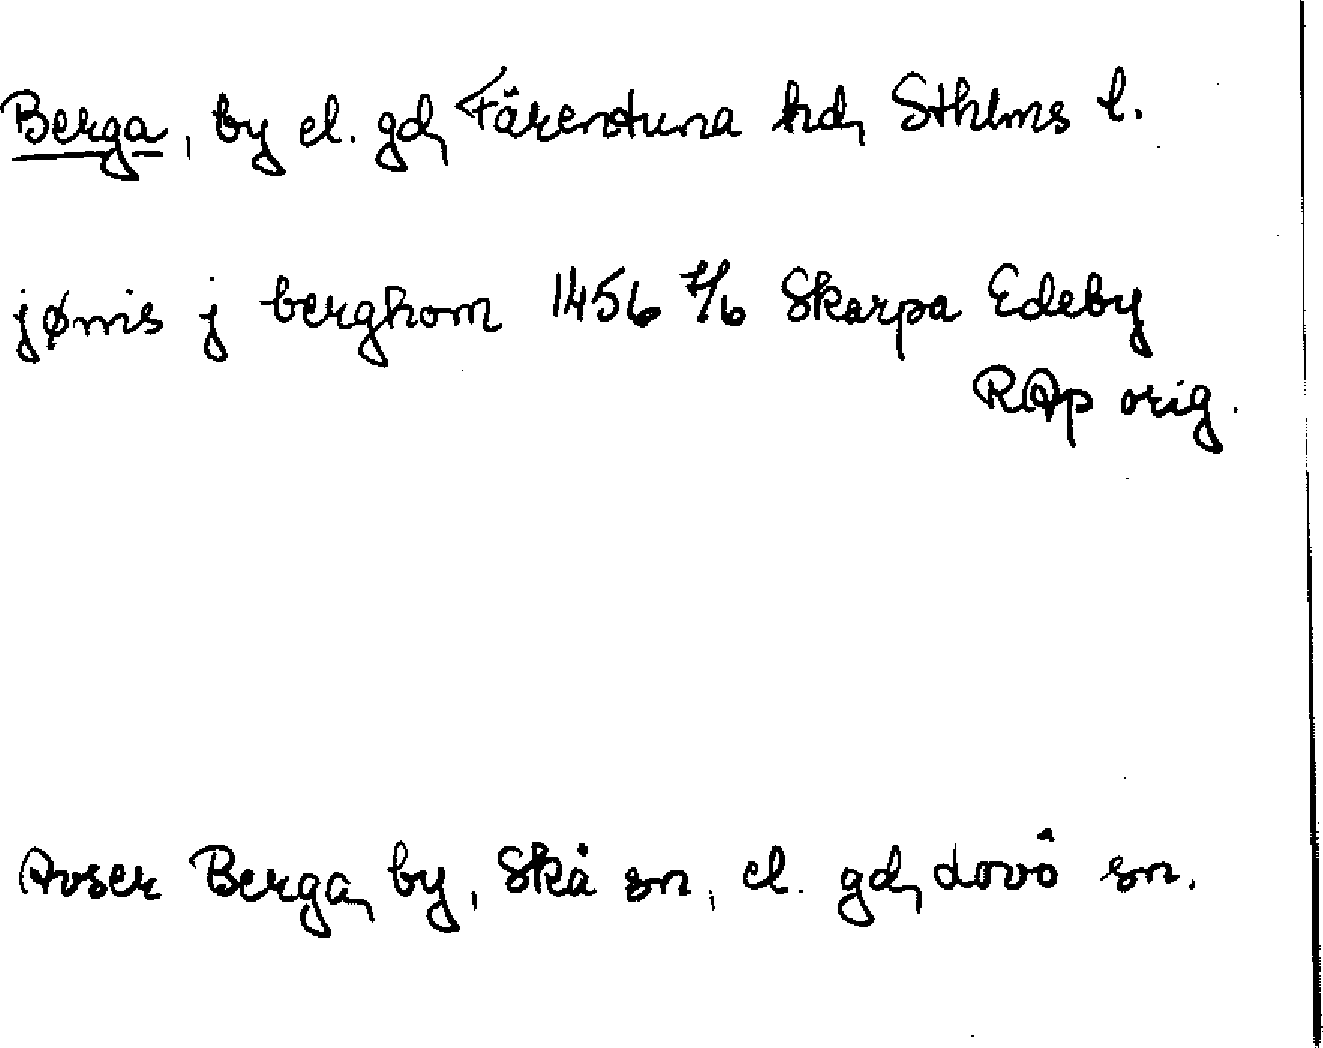 Berga, by el. gd, Färentuna hd, Sthlms l.
jønis j berghom 1456 7/6 Skarpa Edeby
RAp orig.
Avser Berga, by, Skå sn, el. gd, Lovö sn.